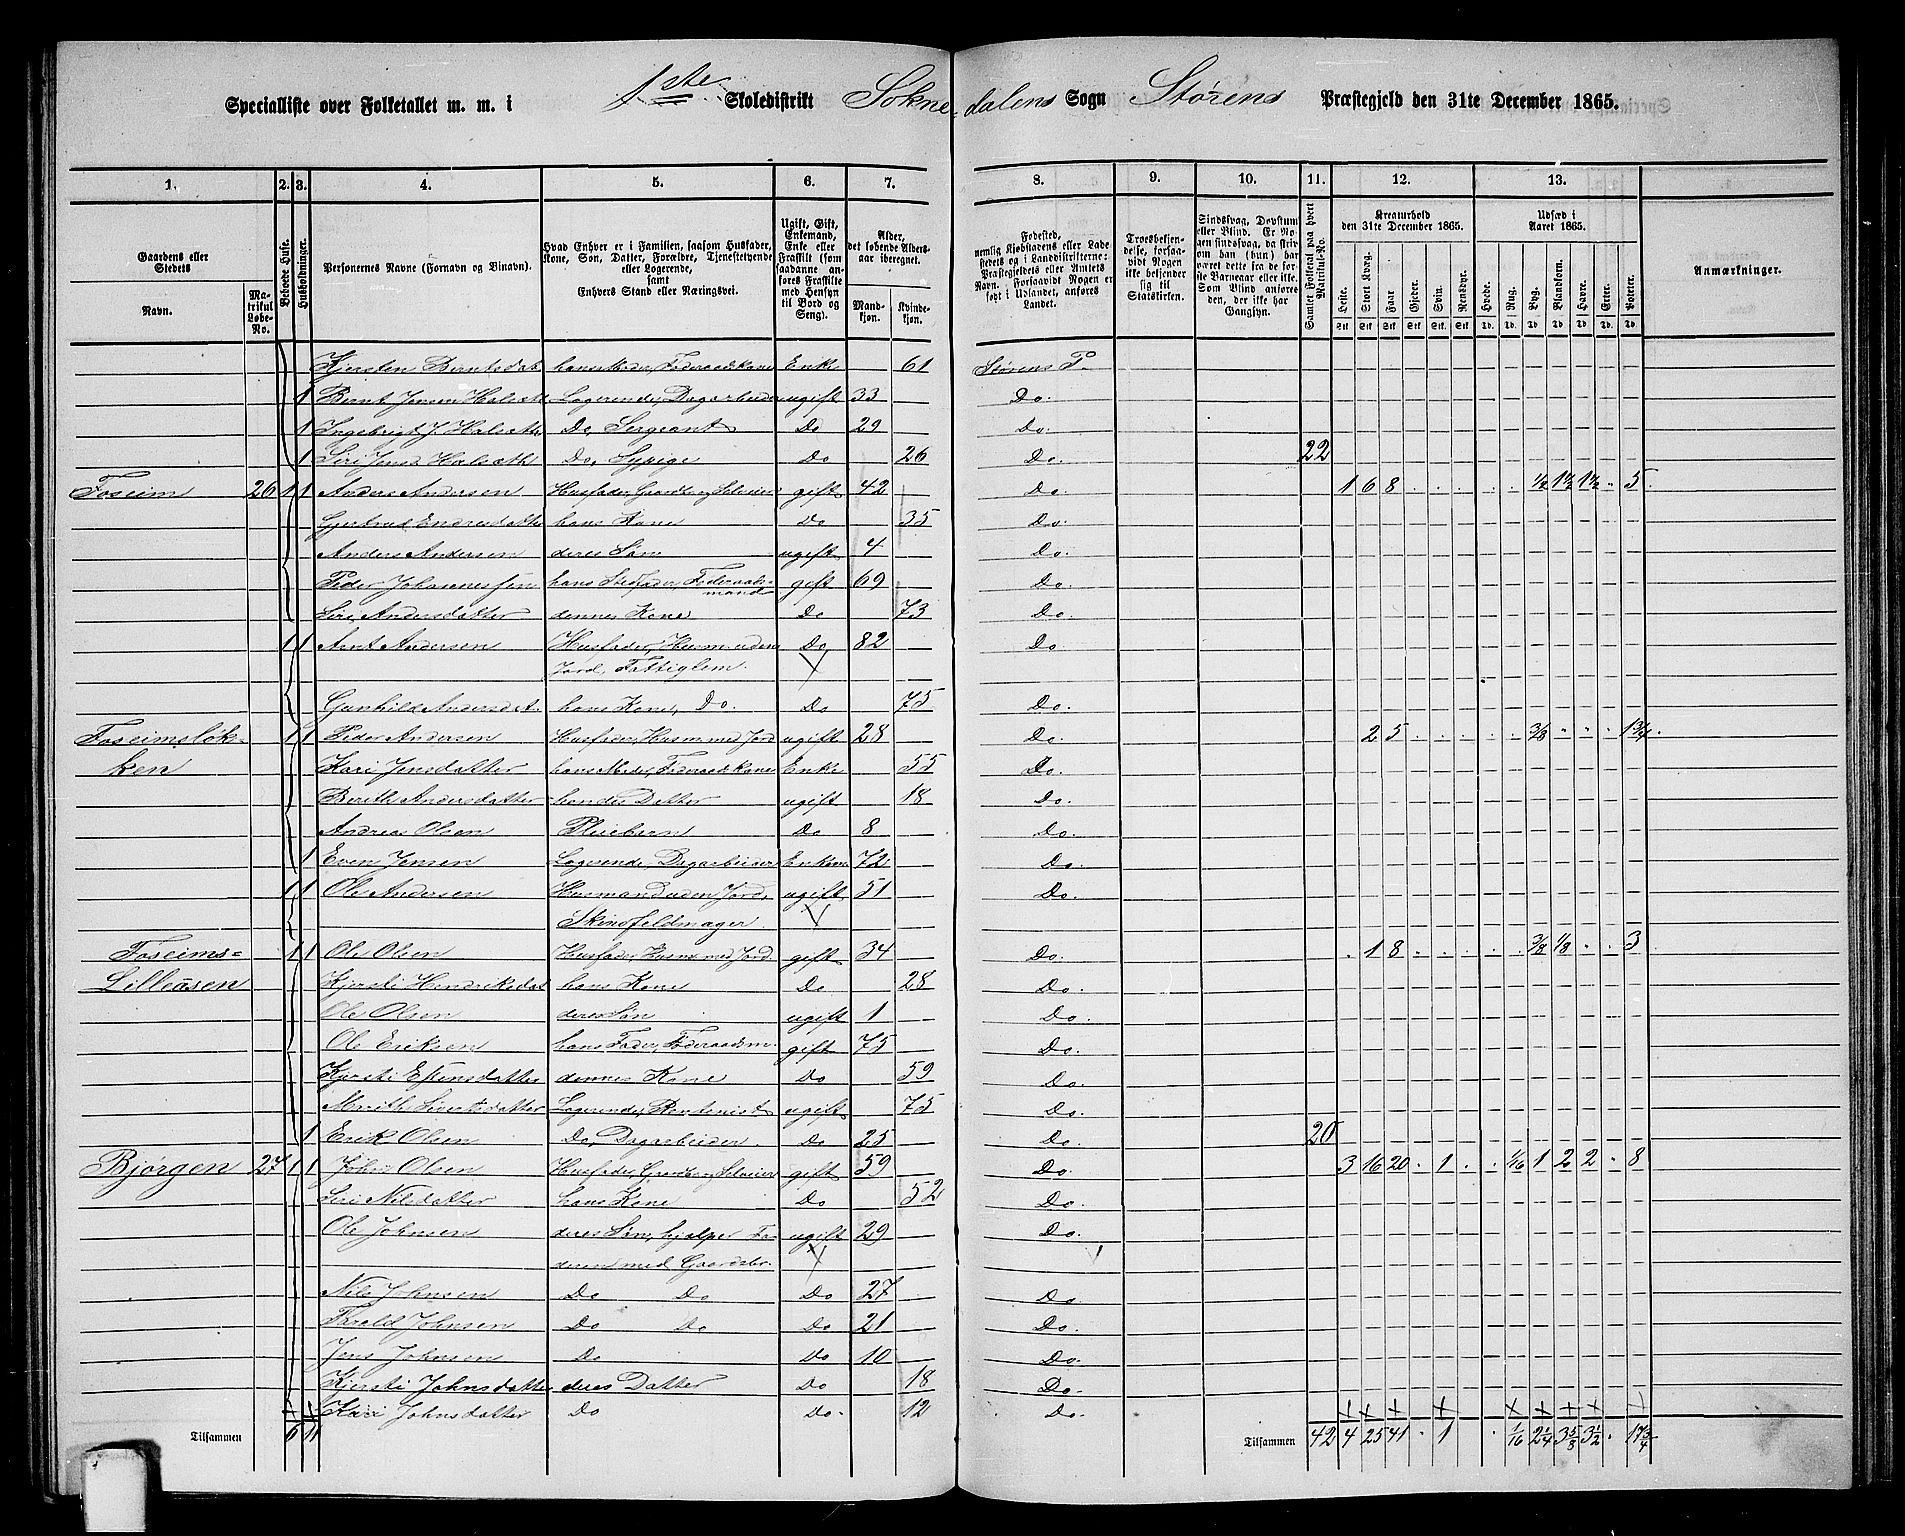 Specialliste over Folketallet m. m. i 1ste Skoledistrikt Soknedalens Sogn Størens Præstegjeld den 31te December 1865.
1. 2. 3. 4. 5. 6. 7. 8. 9. 10. 11. 12. 13.
Gaardens eller Stedets
Navn.
Matrikul Løbe-No.
Beboede Huse.
Husholdninger.
Personernes Navne (Fornavn og Binavn).
Hvad Enhver er i Familien, saasom Husfader, Kone, Søn, Datter, Forældre, Tjenestetyende eller Logerende, samt Enhvers Stand eller Næringsvei.
Ugift, Gift, Enkemand, Enke eller Fraskilt (som saadanne anføres Fraskilte med Hensyn til Bord og Seng).
Alder, det løbende Aldersaar iberegnet.
Mandkjøn. Kvindekjøn.
Fødested, nemlig Kjøbstadens eller Ladestedets og i Landdistrikterne: Præstegjeldets eller Amtets Navn. Forsaavidt Nogen er født i Udlandet, anføres Landet.
Troesbekjendelse, forsaavidt Nogen ikke bekjender sig til Statskirken.
Sindssvag, Døvstum eller Blind. Er Nogen sindssvag, da skrives, hvorvidt han (hun) har været det fra de første Barneaar eller ikke. Som Blind anføres den, der ikke har Gangsyn.
Samlet Folketal paa hvert Matrikul-No.
Kreaturhold den 31te December 1865.
Heste. Stort Kvæg. Faar. Gjeder. Svin. Rensdyr.
Udsæd i Aaret 1865.
Hvede. Rug. Byg. Blandkorn. Havre. Erter. Poteter.
Anmærkninger.
Kjersten Berntsdat. hans Moder, Føderaadskone Enke 61 Størens P.
1 Bernt Jensen Halsæth Logerende, Dagarbeider ugift 33 Do.
1 Ingebrigt J. Halsæth Do, Sergeant Do 29 Do.
1 Siri Jensd. Halsæth Do, Sypige Do 26 Do. 22
Foseim 26 1 1 Anders Andersen Husfader, Gaardbr. og Selveier gift 42 Do. 1 6 8 ½ 1½ 1½ 5
Gjertrud Endresdatter hans Kone Do 35 Do.
Anders Andersen deres Søn ugift 4 Do.
Peder Johannessen hans Stedfader, Føderaadsmand gift 69 Do.
Siri Andersdatter dennes Kone Do 73 Do.
1 1 Arnt Andersen Husfader, Husm. uden Do 82 Do.
Jord, Fattiglem.
Gunhild Andersdat. hans Kone, Do. Do 75 Do.
Foseimsløk- 1 1 Peder Andersen Husfader, Husm. med Jord ugift 28 Do. 2 5 3/8 1¾
ken Kari Jensdatter hans Moder, Føderaadskone Enke 55 Do.
Berith Andersdatter hendes Datter ugift 18 Do.
Andreas Olsen Pleiebarn Do 8 Do.
1 Even Jensen Logerende, Dagarbeider Enkem. 72 Do.
1 1 Ole Andersen Husmand uden Jord, ugift 51 Do.
Skindfeldmager
Foseims- 1 1 Ole Olsen Husfader, Husm. med Jord gift 34 Do. 1 8 3/8 1/8 3
Lilleåsen Kjersti Hendriksdat. hans Kone Do 28 Do.
Ole Olsen deres Søn ugift 1 Do.
Ole Eriksen hans Fader, Føderaadsm. gift 75 Do.
Kjersti Estensdatter dennes Kone Do 59 Do.
Marith Sivertsdatter Logerende, Rentenist ugift 75 Do.
1 Erik Olsen Do, Dagarbeider Do 25 Do. 20
Bjørgen 27 1 1 John Olsen Husfader, Gaardbr. og Selveier gift 59 Do. 3 16 20 1 1/16 1 2 2 8
Siri Nilsdatter hans Kone Do 52 Do.
Ole Johnsen deres Søn, hjælper Fa- ugift 29 Do.
deren med Gaardsbr.
Nils Johnsen Do Do Do 27 Do.
Thrald Johnsen Do Do Do 21 Do.
Jens Johnsen Do Do 10 Do.
Kjersti Johnsdatter deres Datter Do 18 Do.
Kari Johnsdatter Do Do. 12 Do.
Tilsammen 6 11 Tilsammen 42 4 25 41 1 1/16 2¼ 3⅝ 3½ 17¾